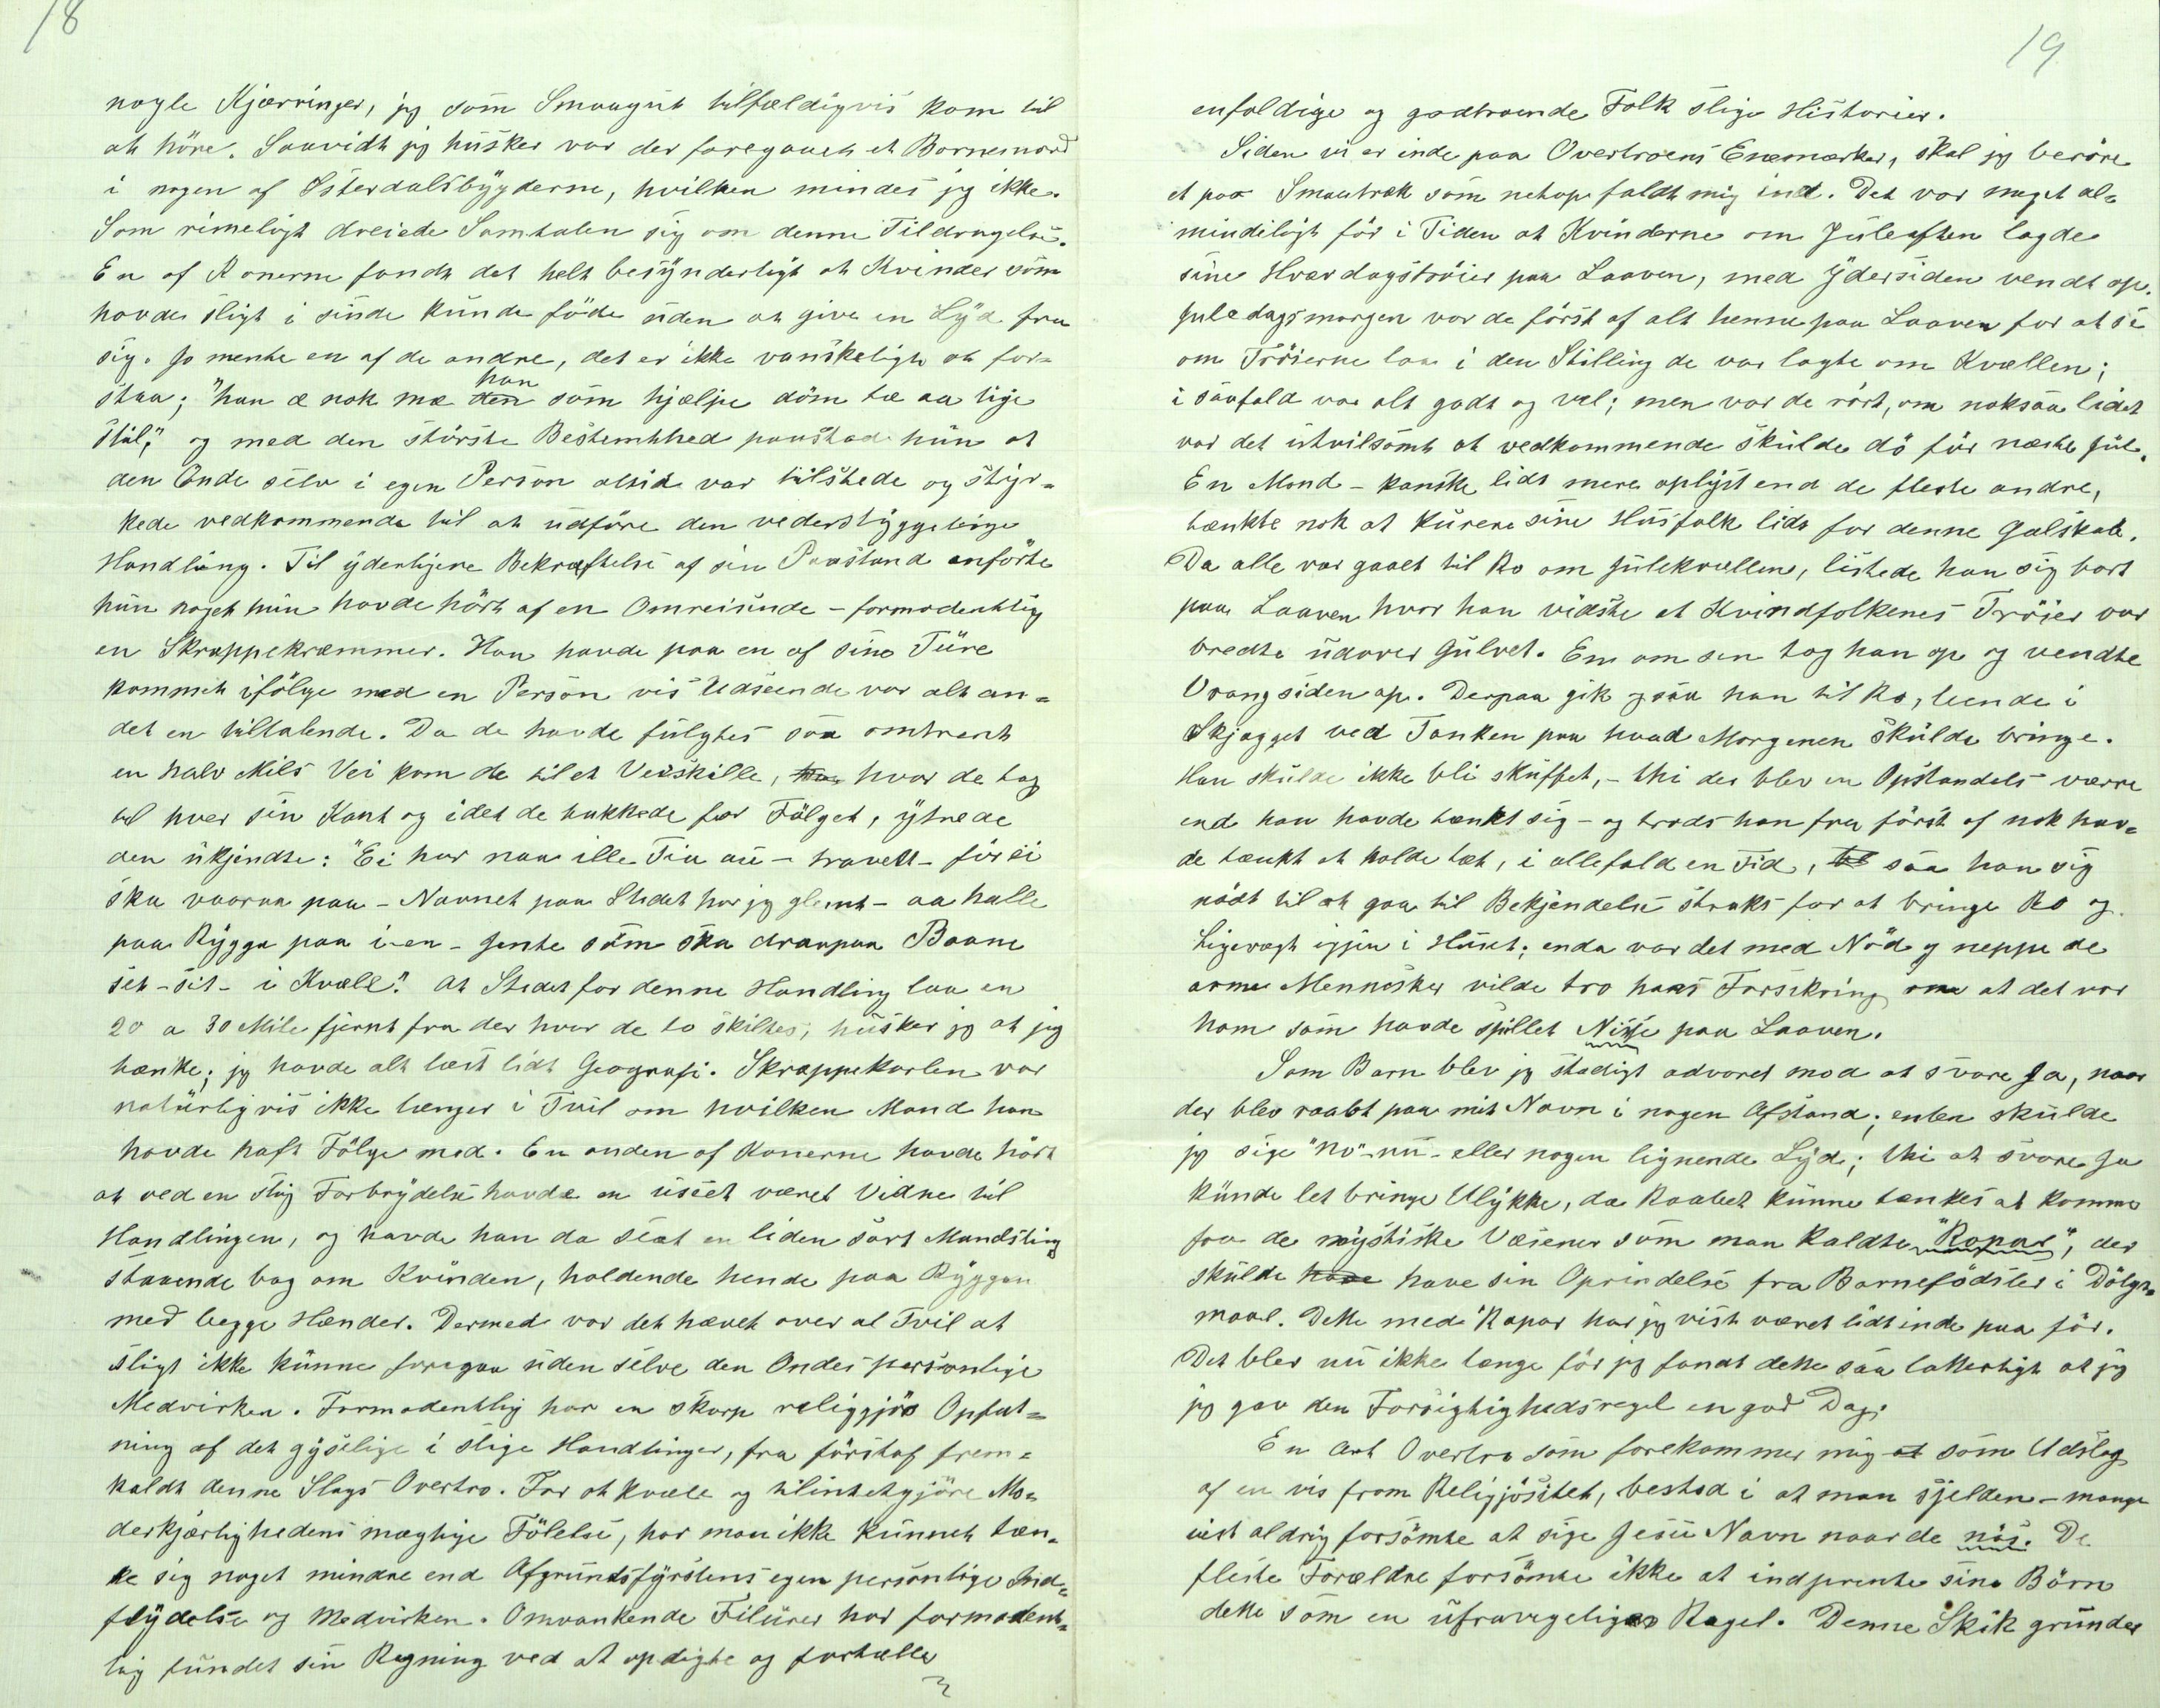 18
nogle Kjærringer, jeg som Smaagut tilfældigvis kom til
at høre. Saavidt jeg husker var der foregaaet et Barnemord
i nogen af Østerdalsbygderne, hvilken mindes jeg ikke.
Som rimeligt dreiede Samtalen sig om denne Tildragelse.
En af Konerne fandt det helt besynderligt at Kvinder som
havde sligt i sinde kunde føde uden at give en Lyd fra
sig. Jo mente en af de andre, det er ikke vanskeligt at for-
staa; "han æ nok mæ den han som hjælpe døm te aa lige
stil," og med den største Bestemthed paastod hun at
den Onde selv i egen Person altid var tilstede og styr-
kede vedkommende til at udføre den vederstyggelige
Handling. Til yderligere Bekræftelse af sin Paastand anførte
hun noget hun havde hørt af en Omreisende - formodentlig
en Skrappekræmmer. Han havde paa en af sine Ture
kommet ifølge med en Person vis Udseende var alt an-
det en tiltalende. Da de havde fulgtes saa omtrent
en halv Mils Vei kom de til et Veiskille, hvor de tog
til hver sin Kant og idet de takkede for Følget, ytrede
den ukjendte: "Ei har naa ille Tia au - travelt - før ei
ska vaaraa paa - Navnet paa Stedet har jeg glemt - aa halle
paa Rygga paa i-en - Jente søm ska draapaa Baane
set - sit - i Kvæll." At Stedet for denne Handling laa en
20 a 30 Mile fjernt fra der hvor de to skiltes, husker jeg at jeg
tænkte; jeg havde alt læst lidt Geografi. Skrappekarlen var
naturligvis ikke længer i Tvil om hvilken Mand han
havde haft Følge med. En anden af Konerne havde hørt
at ved en slig Forbrydelse havde en useet været Vidne til
Handlingen, og havde han da seet en liden sort Mandsling
staaende bag om Kvinden, holdende hende paa Ryggen
med begge Hænder. Dermed var det hævet over al Tvil at
sligt ikke kunne foregaa uden selve den Ondes personlige
Medvirken. Formodentlig har en skarp religjøs Opfat-
ning af det gyselige i slige Handlinger, fra førstaf frem-
kaldt denne Slags Overtro. For at kvæle og tilintetgjøre Mo-
derkjærlighedens mægtige Følelse, har man ikke kunnet tæn-
ke sig noget mindre end Afgrundsfyrstens egen personlige Ind-
flydelse og Medvirken. Omvankende Filurer har formodent-
lig fundet sin Regning ved at opdigte og fortælle
19
enfoldige og godtroende Folk slige Historier.
Siden vi er inde paa Overtroens Enemærker, skal jeg berøre
et par Smaatræk som netop faldt mig ind. Det var meget al-
mindeligt før i Tiden at Kvinderne om Juleaften lagde
sine Hverdagstrøier paa Laaven, med Ydersiden vendt op.
Juledagsmorgen var de først af alt henne paa Laaven for at se
om Trøierne laa i den Stilling de var lagte om Kvællen;
i saafald var alt godt og vel; men var de rørt, om noksaa lidet
var det utvilsomt at vedkommende skulde dø før næste Jul.
En Mand - kanske lidt mere oplyst end de fleste andre,
tænkte nok at kurere sine Husfolk lidt for denne Galskab.
Da alle var gaaet til Ro om Julekvællen, listede han sig bort
paa Laaven hvor han vidste at Kvindfolkenes Trøier var
bredte udover Gulvet. En om en tog han op og vendte
Vrangsiden op. Derpaa gik ogsaa han til Ro, leende i
Skjægget ved Tanken paa hvad Morgenen skulde bringe.
Han skulde ikke bli skuffet, - thi der blev en Opstandels værre
end han havde tænkt sig - og trods han fra først af nok hav-
de tænkt at holde tæt, i allefald en Tid, saa han sig
nødt til at gaa til Bekjendelse straks for at bringe Ro og
Ligevægt igjen i Huset; enda var det med Nød og neppe de
arme Mennesker vilde tro hans Forsikring om at det var
ham som havde spillet Nisse paa Laaven.
Som Barn blev jeg stadigt advaret mod at svare Ja, naar
der blev raabt paa mit Navn i nogen Afstand; enten skulde
jeg sige "No" - nu - eller nogen lignende Lyd; thi at svare Ja
kunde let bringe Ulykke, da Raabet kunne tænkes at komme
fra de mystiske Væsener som man kaldte "Ropar", der
skulde have have sin Oprindelse fra Barnefødsler i Dølgs-
maal. Dette med Ropar har jeg vist været lidt inde paa før.
Det blev nu ikke længe før jeg fandt dette saa latterligt at jeg
jeg gav den Forsigtighedsregel en god Dag.
En Art Overtro som forekommer mig at som Udslag
af en vis from Religjøsitet, bestod i at man sjelden - mange
vist aldrig forsømte at sige Jesu Navn naar de nøs. De
fleste Forældre forsømte ikke at indprente sine Børn
dette som en ufravigelig Regel. Denne Skik grunder